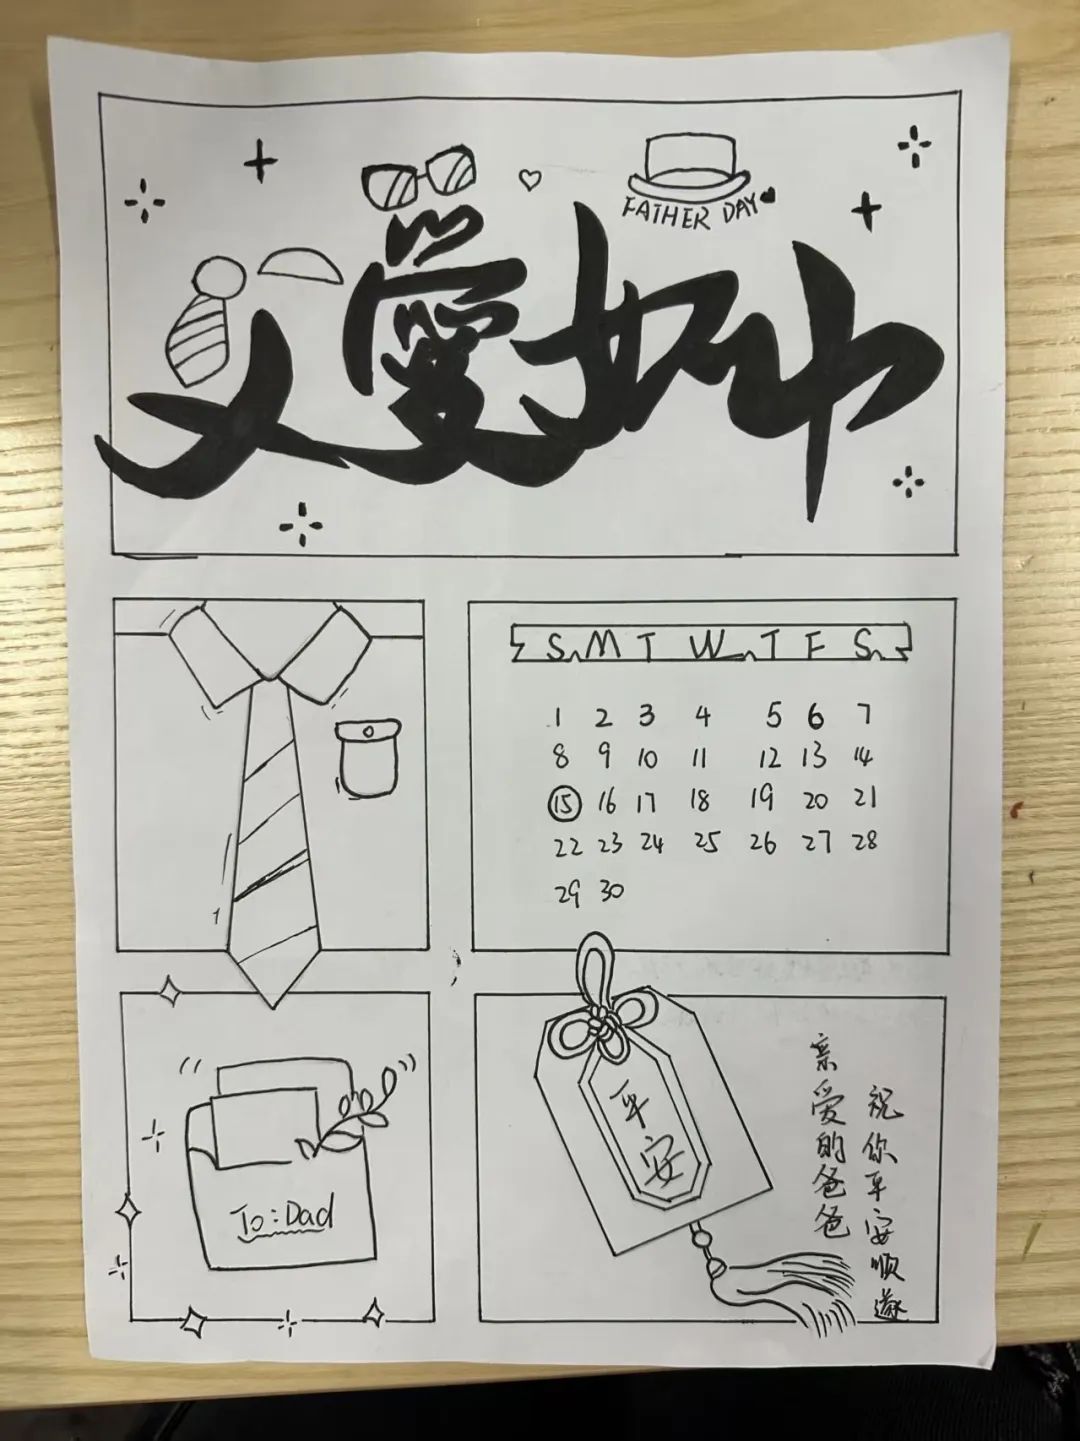 FATHER DAY
父爱如山
S M T W T F S
1 2 3 4 5 6 7
8 9 10 11 12 13 14
15 16 17 18 19 20 21
22 23 24 25 26 27 28
29 30
To: Dad
平安
亲爱的爸爸
祝你平安顺遂